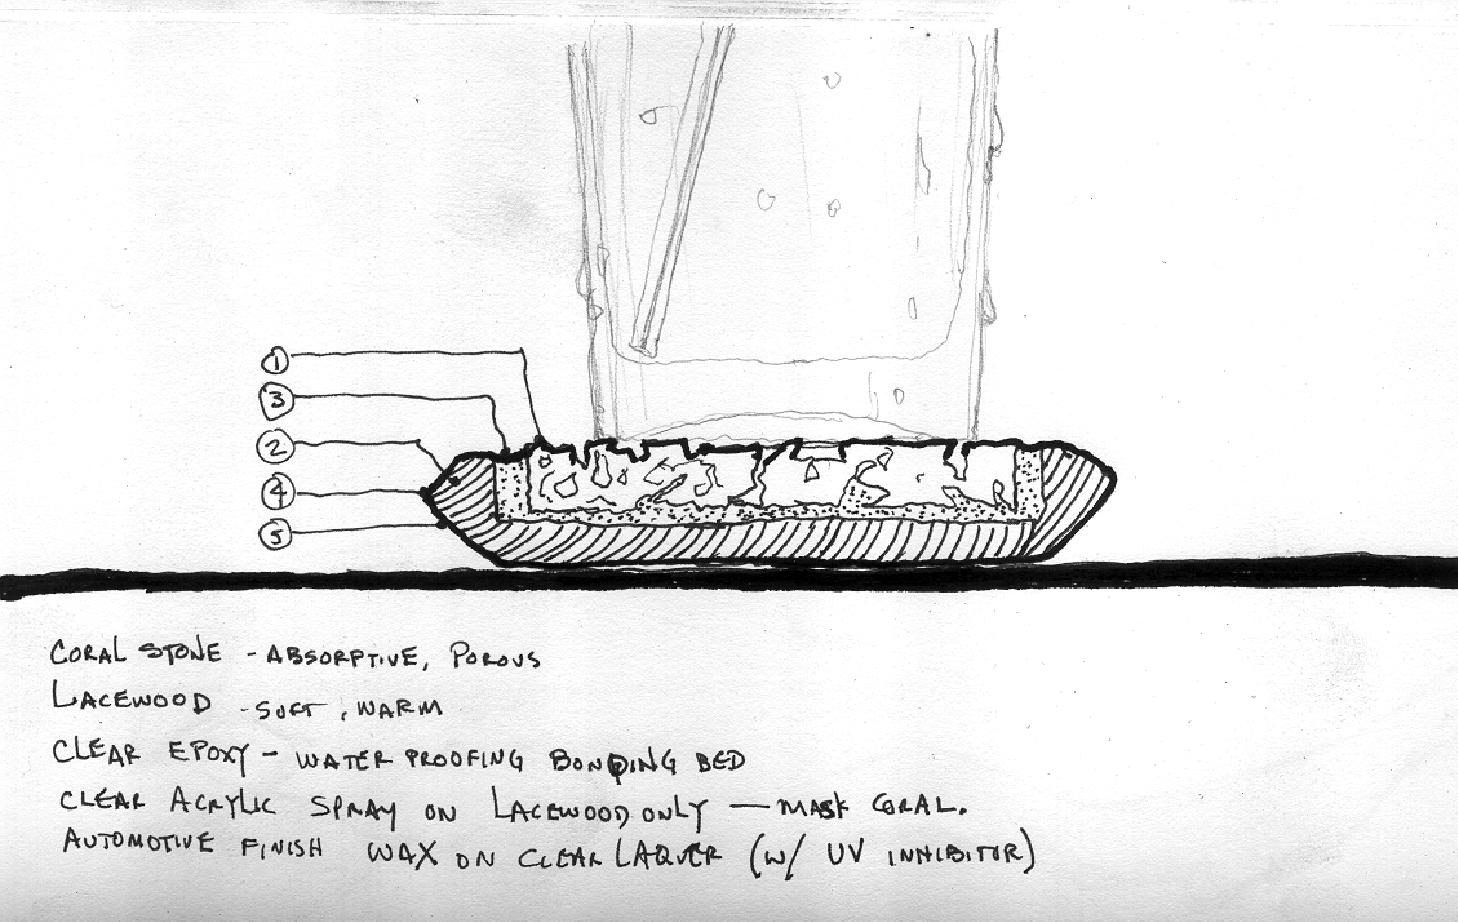 1
3
2
4
5
CORAL STONE - ABSORPTIVE, POROUS
LACEWOOD - SOFT, WARM
CLEAR EPOXY - WATER PROOFING BONDING BED
CLEAR ACRYLIC SPRAY ON LACEWOOD ONLY — MASK CORAL.
AUTOMOTIVE FINISH WAX ON CLEAR LAQUER (W/ UV INHIBITOR)